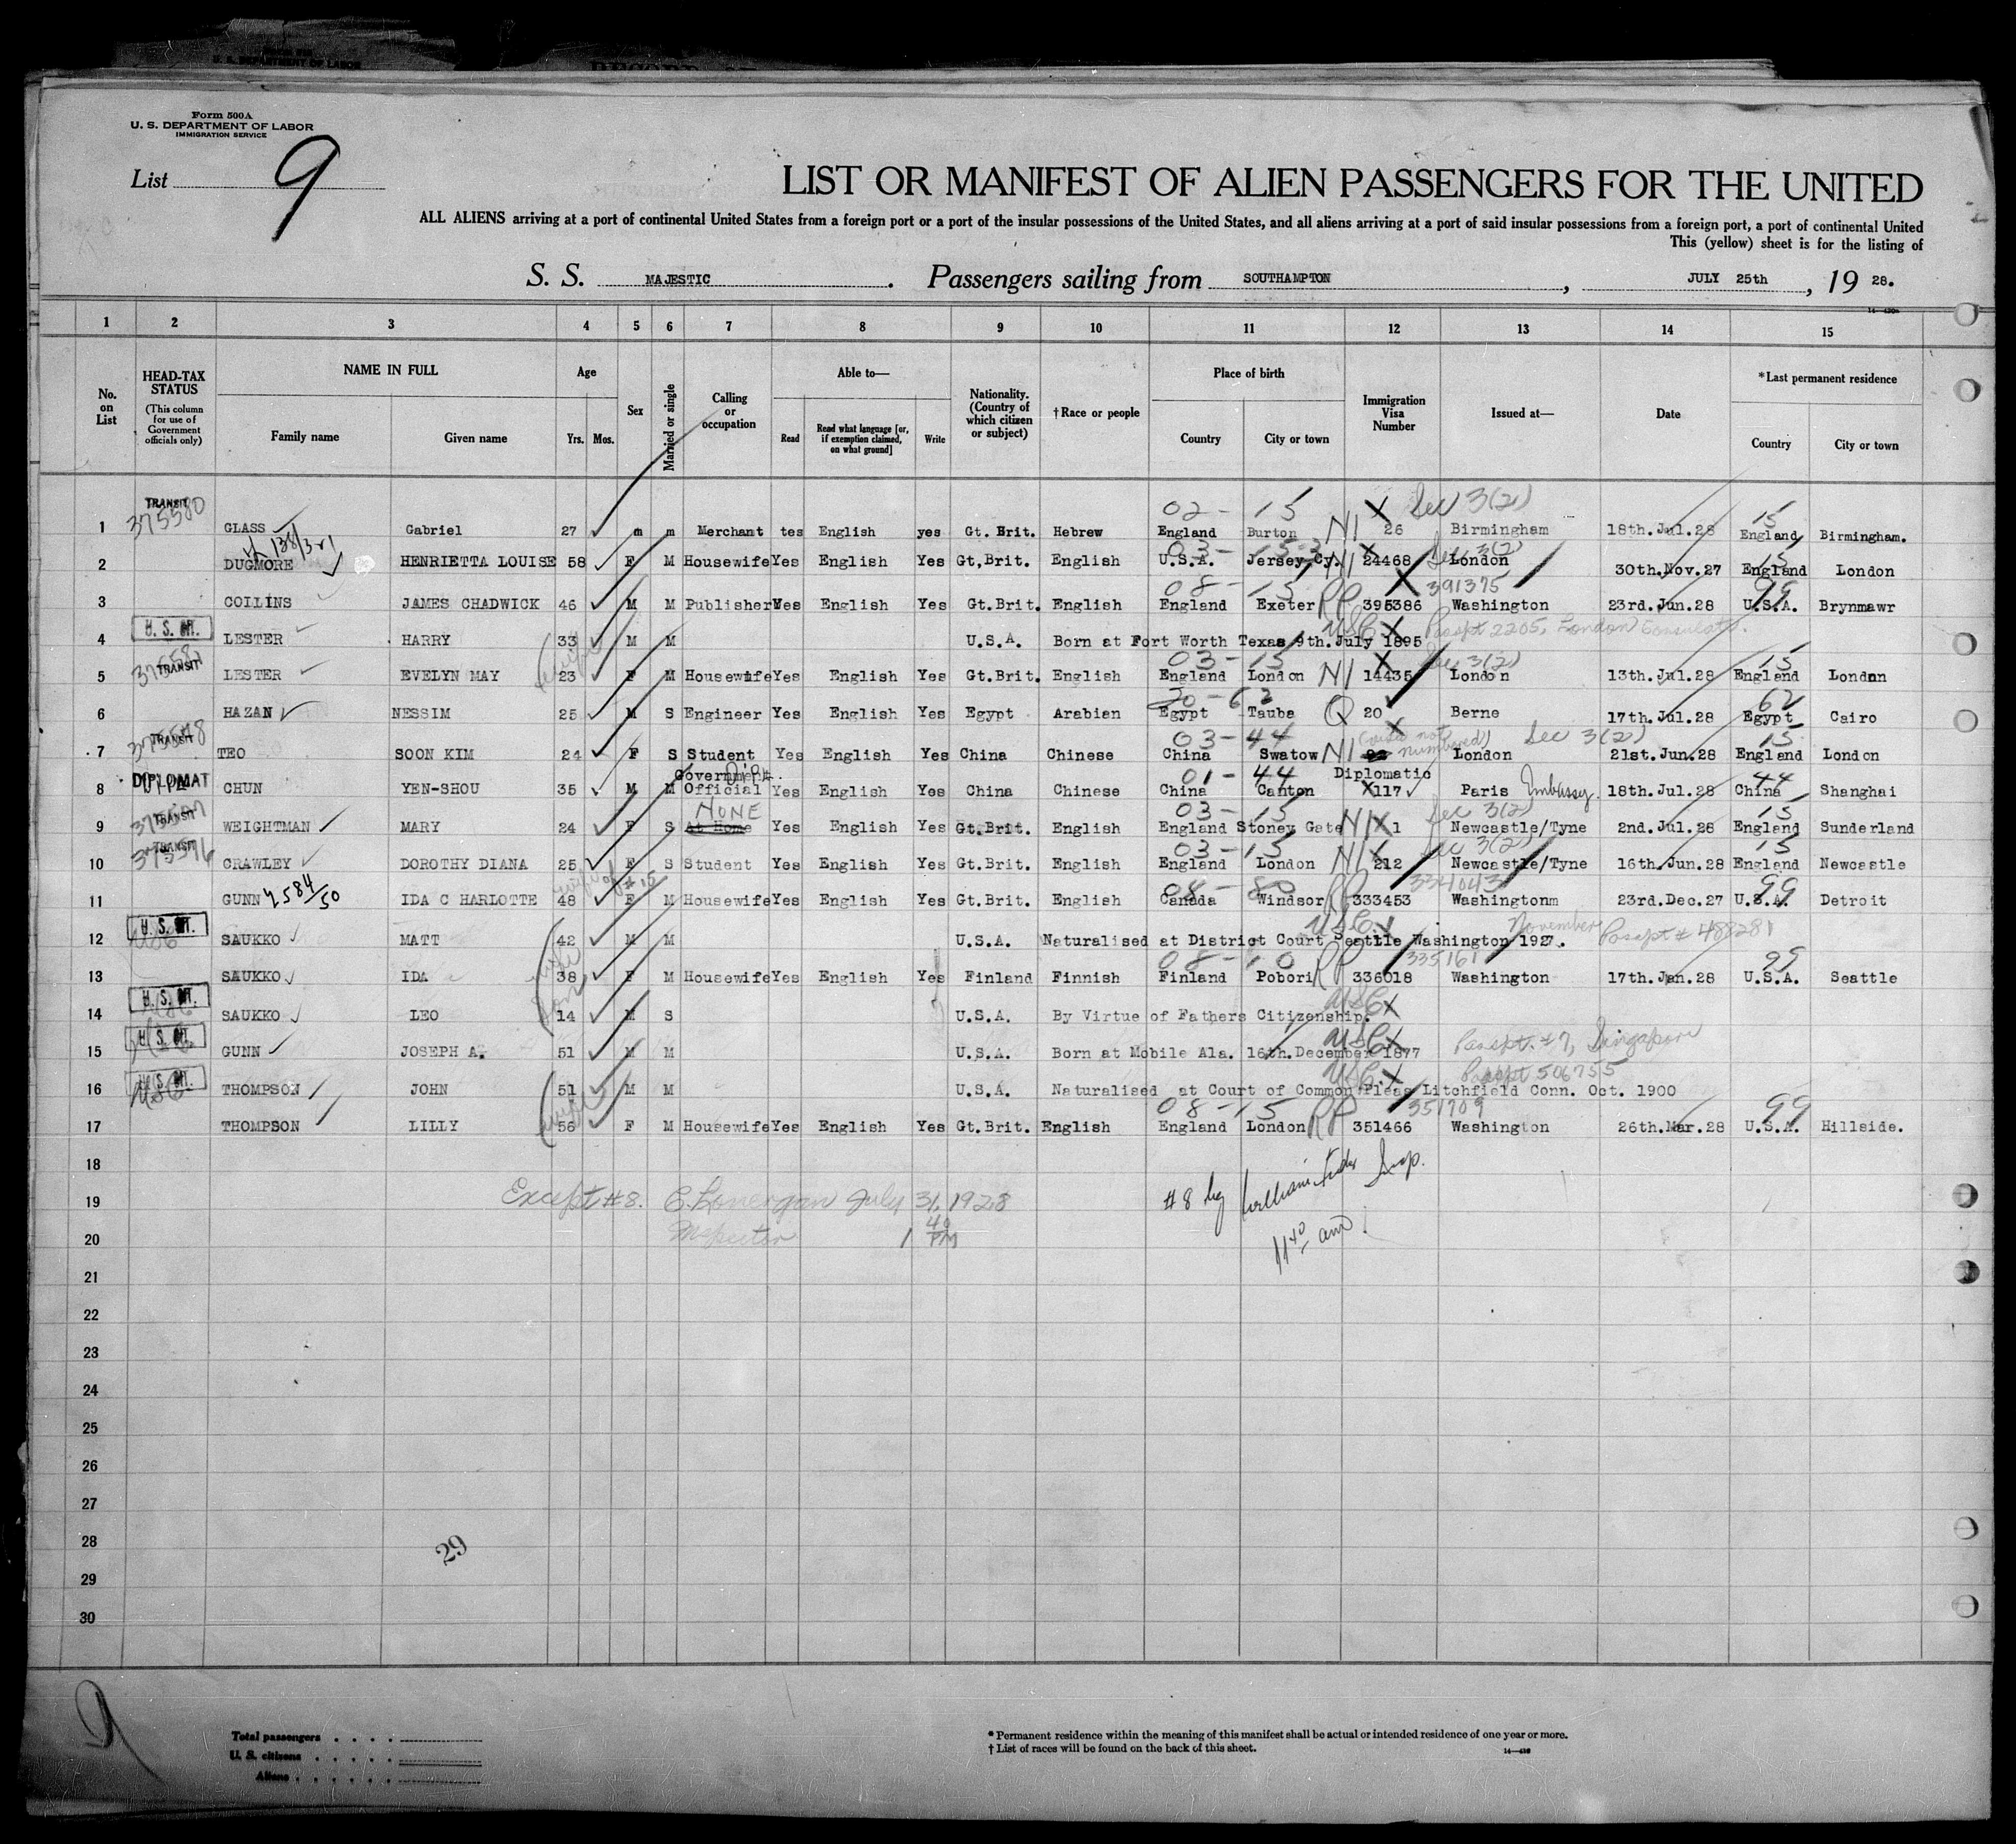 U. S. DEPARTMENT OF LABOR
Form 500A
U. S. DEPARTMENT OF LABOR
IMMIGRATION SERVICE
List 9
LIST OR MANIFEST OF ALIEN PASSENGERS FOR THE UNITED
ALL ALIENS arriving at a port of continental United States from a foreign port or a port of the insular possessions of the United States, and all aliens arriving at a port of said insular possessions from a foreign port, a port of continental United
This (yellow) sheet is for the listing of
S. S. MAJESTIC. Passengers sailing from SOUTHAMPTON, JULY 25th, 19 28.
1 2 3 4 5 6 7 8 9 10 11 12 13 14 15
No. on List
HEAD-TAX STATUS (This column for use of Government officials only)
NAME IN FULL Family name Given name
Age Yrs. Mos.
Sex
Married or single
Calling or occupation
Able to— Read Read what language [or, if exemption claimed, on what ground] Write
Nationality. (Country of which citizen or subject)
†Race or people
Place of birth Country City or town
Immigration Visa Number
Issued at—
Date
*Last permanent residence Country City or town
TRANSIT 375580 02- 15 X Sec 3(2) 15
1 GLASS Gabriel 27 m m Merchant tes English yes Gt. Brit. Hebrew England Burton NI 26 Birmingham 18th.Jul.28 England Birmingham.
138/321 03- 15-3 X Sec 3(2) 15
2 DUGMORE HENRIETTA LOUISE 58 F M Housewife Yes English Yes Gt,Brit. English U.S.A. Jersey Cy. NI 24468 London 30th.Nov.27 England London
08- 15 X 391375 99
3 COILINS JAMES CHADWICK 46 M M Publisher Yes English Yes Gt.Brit. English England Exeter RP 395386 Washington 23rd.Jun.28 U.S.A. Brynmawr
U. S. CIT. USC X Passpt 2205, London Consulate.
4 LESTER HARRY 33 M M U.S.A. Born at Fort Worth Texas 9th.July 1895
TRANSIT wife 03-15 X Sec 3(2) 15
5 LESTER EVELYN MAY 23 F M Housewife Yes English Yes Gt.Brit. English England London NI 14435 London 13th.Jul.28 England London
62
6 HAZAN NESSIM 25 M S Engineer Yes English Yes Egypt Arabian Egypt Tauba Q 20 Berne 17th.Jul.28 Egypt Cairo
TRANSIT 03-44 X (visa not numbered) Sec 3(2) 15
7 TEO SOON KIM 24 F S Student Yes English Yes China Chinese China Swatow NI London 21st.Jun.28 England London
DIPLOMAT 01-44 Diplomatic 44
8 CHUN YEN-SHOU 35 M M Government Official Yes English Yes China Chinese China Canton X117 Paris Embassy. 18th.Jul.28 China Shanghai
TRANSIT NONE 03-15 Sec 3(2) 15
9 WEIGHTMAN MARY 24 F S At Home Yes English Yes Gt.Brit. English England Stoney Gate NI X 1 Newcastle/Tyne 2nd.Jul.28 England Sunderland
TRANSIT 375576 03-15 Sec 3(2) 15
10 CRAWLEY DOROTHY DIANA 25 F S Student Yes English Yes Gt.Brit. English England London NI X 212 Newcastle/Tyne 16th.Jun.28 England Newcastle
wife of #15 08-80 334043 99
11 GUNN IDA C HARLOTTE 48 F M Housewife Yes English Yes Gt.Brit. English Canada Windsor RP 333453 Washingtonm 23rd.Dec.27 U.S.A. Detroit
U. S. CIT. USC X November Passpt # 488281
12 SAUKKO MATT 42 M M U.S.A. Naturalised at District Court Seattle Washington 1927.
wife 08-10 335161 99
13 SAUKKO IDA 38 F M Housewife Yes English Yes Finland Finnish Finland Pobori RP 336018 Washington 17th.Jan.28 U.S.A. Seattle
U. S. CIT. Son USC X
14 SAUKKO LEO 14 M S U.S.A. By Virtue of Fathers Citizenship.
U. S. CIT. USC X Passpt. #7, Singapore
15 GUNN JOSEPH A. 51 M M U.S.A. Born at Mobile Ala. 16th.December 1877
U. S. CIT. USC. X Passpt 506755
16 THOMPSON JOHN 51 M M U.S.A. Naturalised at Court of Common Pleas Litchfield Conn. Oct. 1900
wife 08-15 351709 99
17 THOMPSON LILLY 56 F M Housewife Yes English Yes Gt.Brit. English England London RP 351466 Washington 26th.Mar.28 U.S.A. Hillside.
18
19 Except #8. E. Lonergan July 31, 1928 #8 by Insp.
20 Inspector 1 40 PM 11 40 am.
21
22
23
24
25
26
27
28
29
29
30
9
Total passengers . . . .
U. S. citizens . . . . .
Aliens . . . . . .
* Permanent residence within the meaning of this manifest shall be actual or intended residence of one year or more.
† List of races will be found on the back of this sheet.